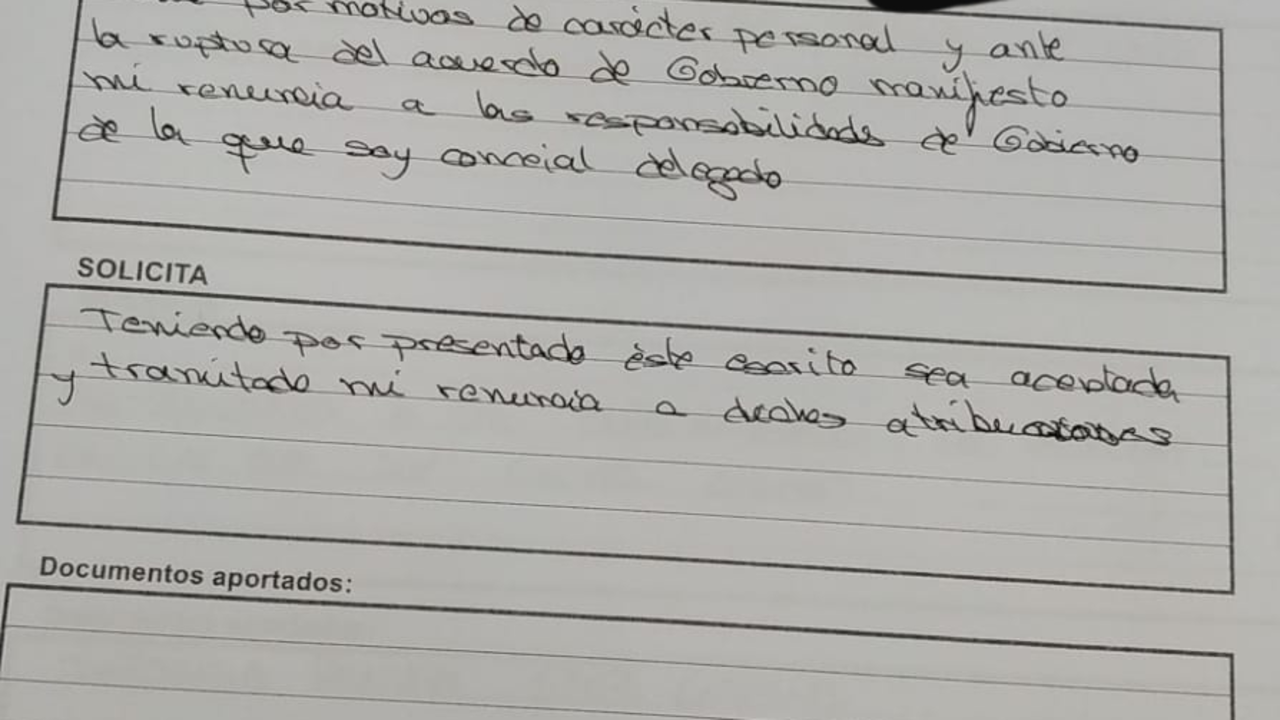 por motivos de carácter personal y ante
la ruptura del acuerdo de Gobierno manifiesto
mi renuncia a las responsabilidades de Gobierno
de la que soy concejal delegado
SOLICITA
Teniendo por presentado éste escrito sea aceptada
y tramitado mi renuncia a dichas atribuciones
Documentos aportados: